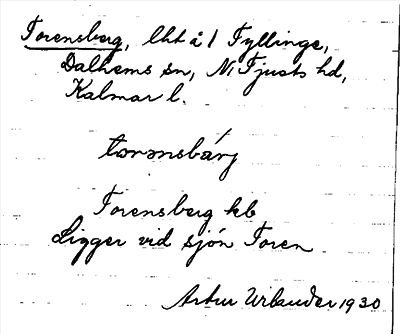 Torensberg, lht å 1 Fyllinge,
Dalhems sn, N. Tjusts hd,
Kalmar l.
torənsbárj
Torensberg kb
Ligger vid sjön Toren
Artur Urbander 1930